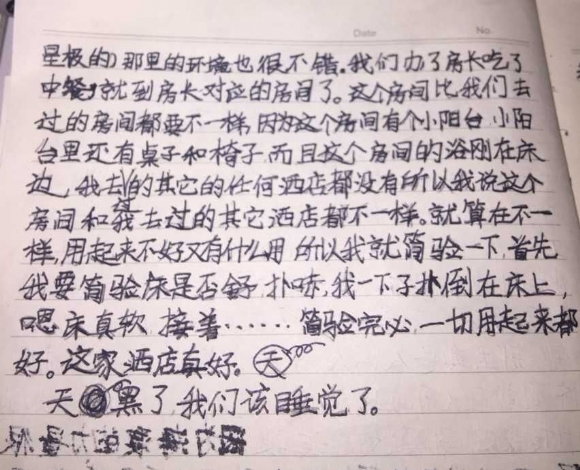 Date No.
星极的)那里的环境也很不错。我们办了房长吃了
中餐,就到房长对应的房间了。这个房间比我们去
过的房间都要不一样,因为这个房间有个小阳台,小阳
台里还有桌子和椅子,而且这个房间的浴刚在床
边,我去过的其它的任何酒店都没有所以我说这个
房间和我去过的其它酒店都不一样。就算在不一
样,用起来不好又有什么用 所以我就简验一下,首先
我要简验床是否舒,扑哧,我一下子扑倒在床上,
嗯床真软,接着……简验完必,一切用起来都
好。这家酒店真好。天
天黑了我们该睡觉了。